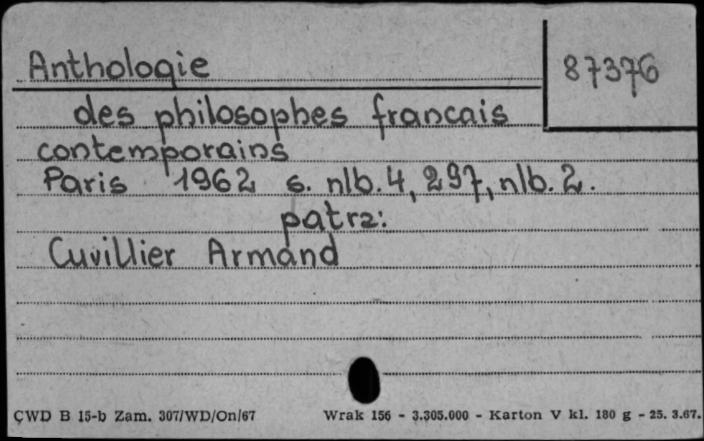 Anthologie
87376
des philosophes francais
contemporains
Paris 1962 s. nlb. 4, 297, nlb. 2.
patrz:
Cuvillier Armand
ÇWD B 15-b Zam. 307/WD/On/67 Wrak 156 - 3.305.000 - Karton V kl. 180 g - 25. 3.67.